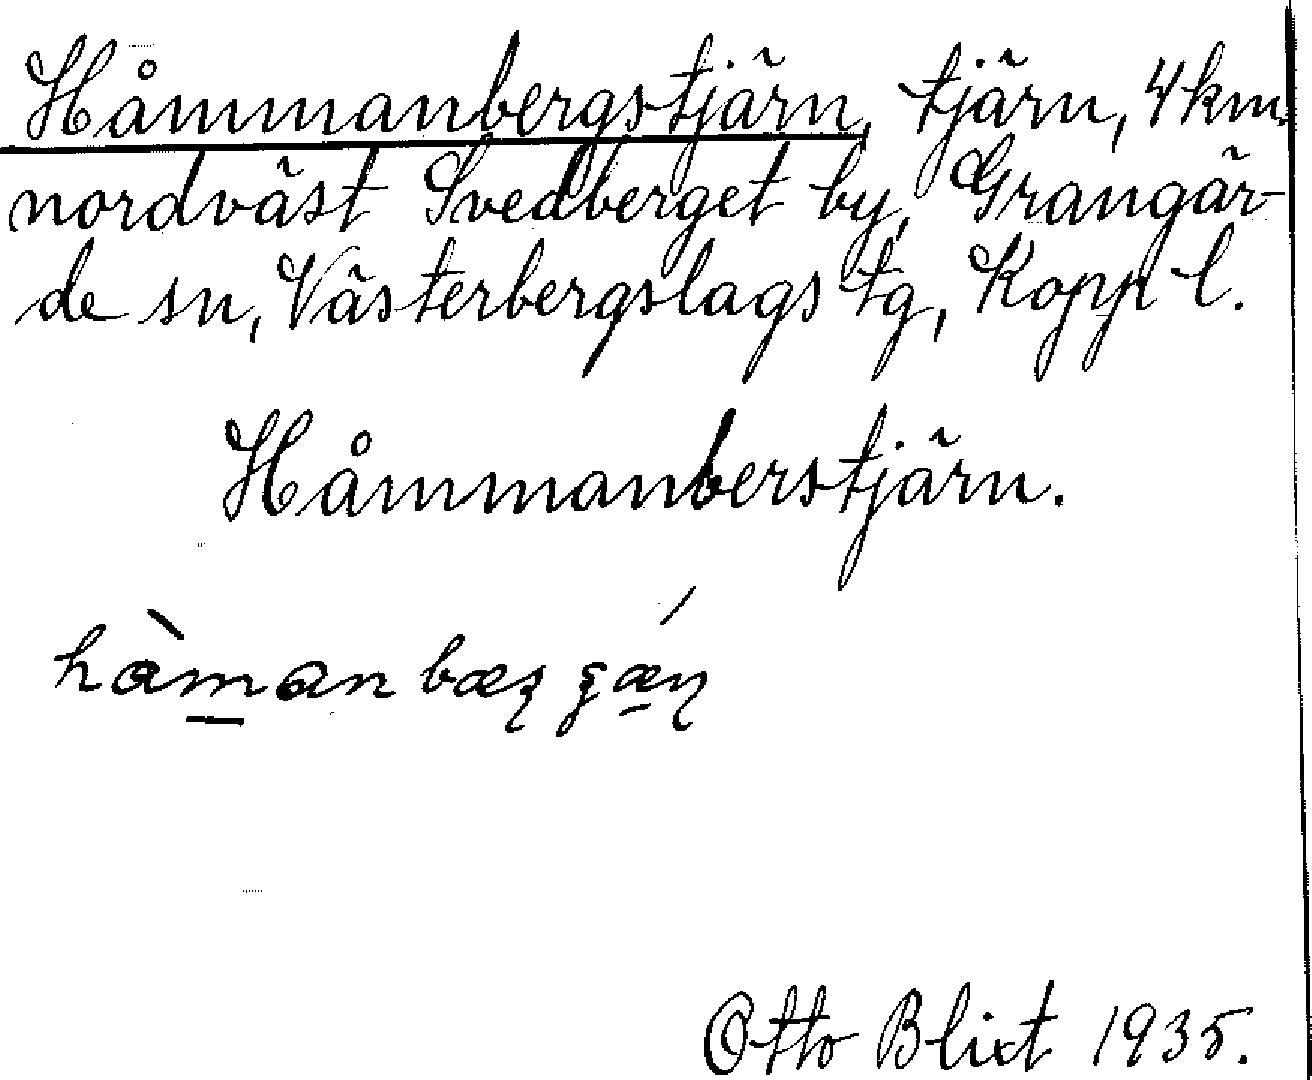 Håmmanbergstjärn, tjärn, 4 km.
nordväst Svedberget by, Grangär-
de sn, Västerbergslags tg, Kopp l.
Håmmanberstjärn.
Otto Blixt 1935.